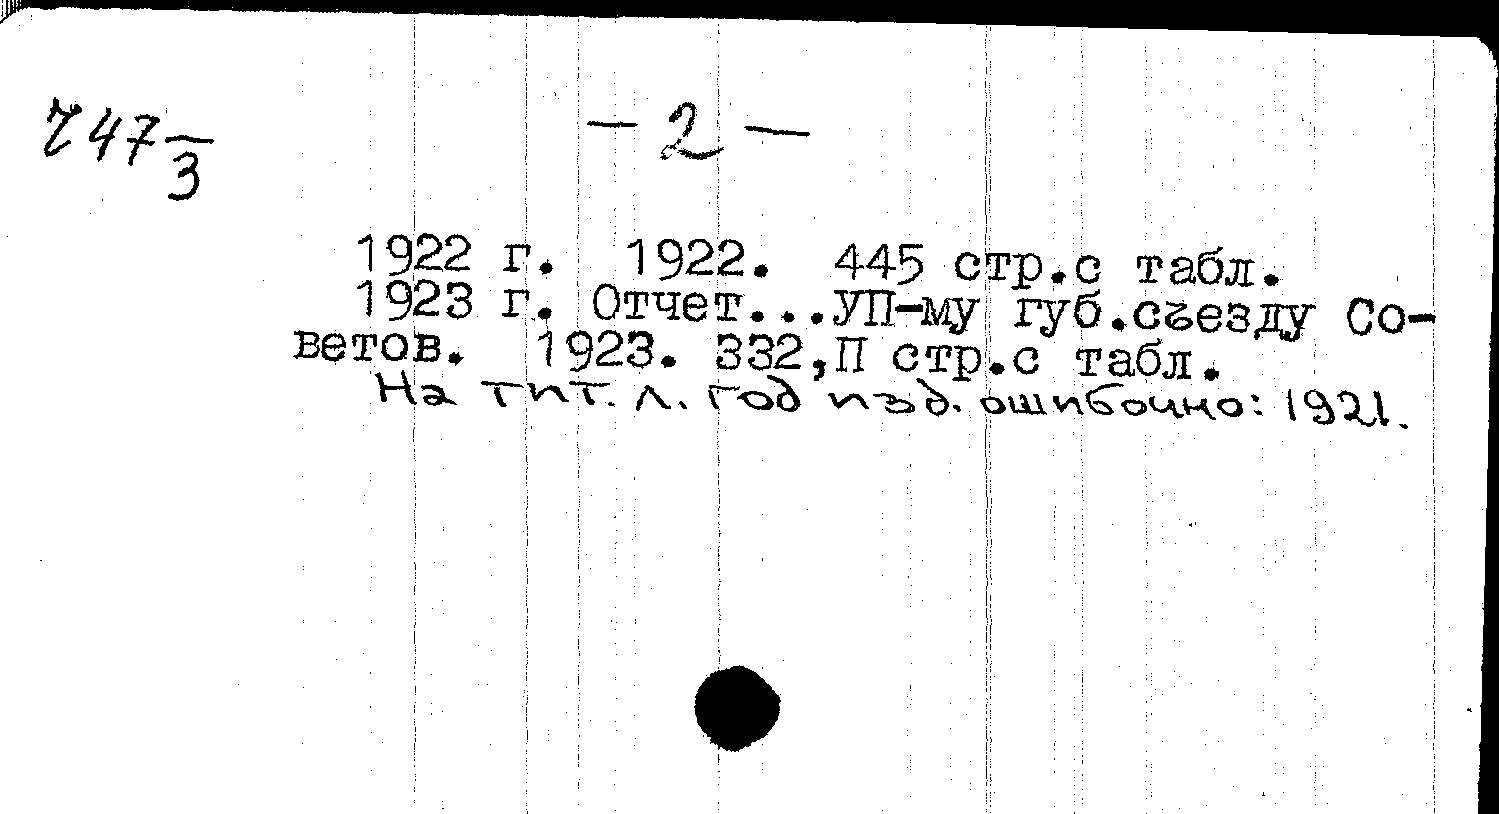 Z47 — 2 —
3
1922 г. 1922. 445 стр.с табл.
1923 г. Отчет...УП-му губ.съезду Со-
ветов. 1923. 332,П стр.с табл.
На тит. л. год изд. ошибочно: 1921.